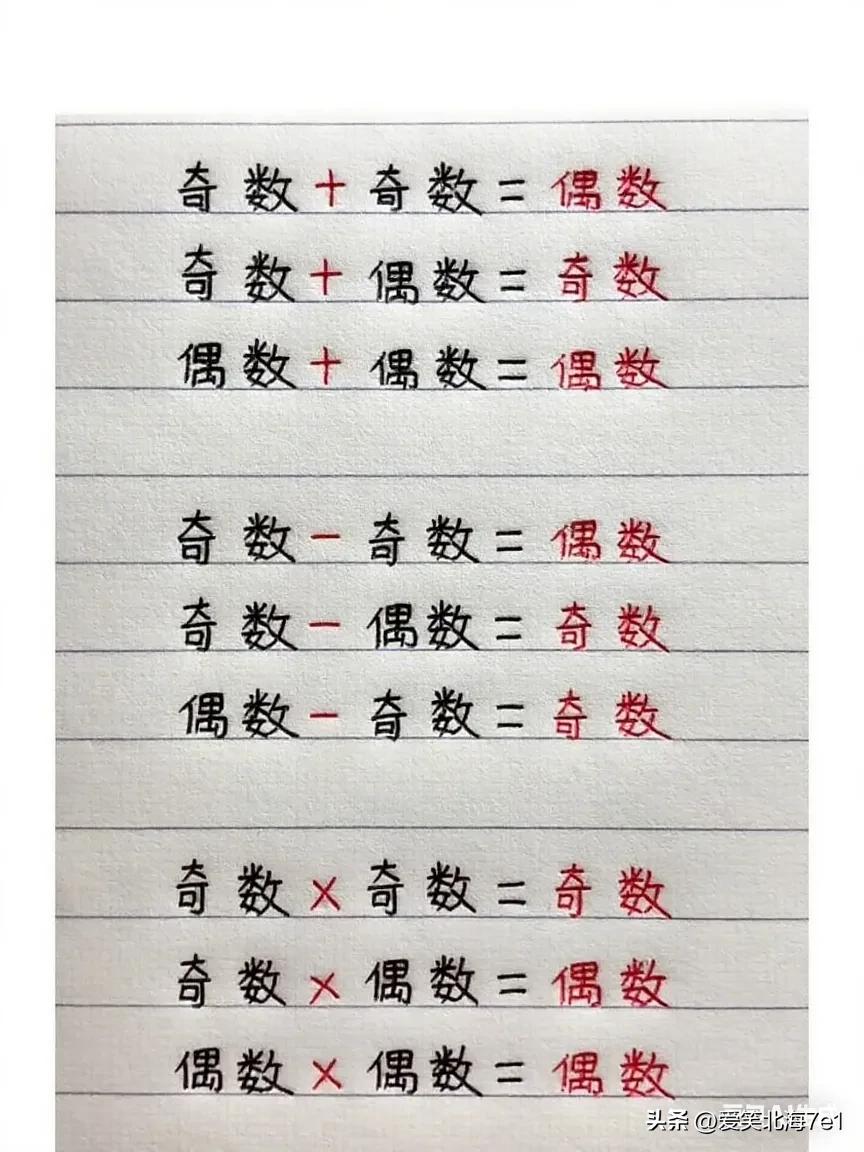 奇数+奇数=偶数
奇数+偶数=奇数
偶数+偶数=偶数
奇数-奇数=偶数
奇数-偶数=奇数
偶数-奇数=奇数
奇数×奇数=奇数
奇数×偶数=偶数
偶数×偶数=偶数
头条 @爱笑北海7e1